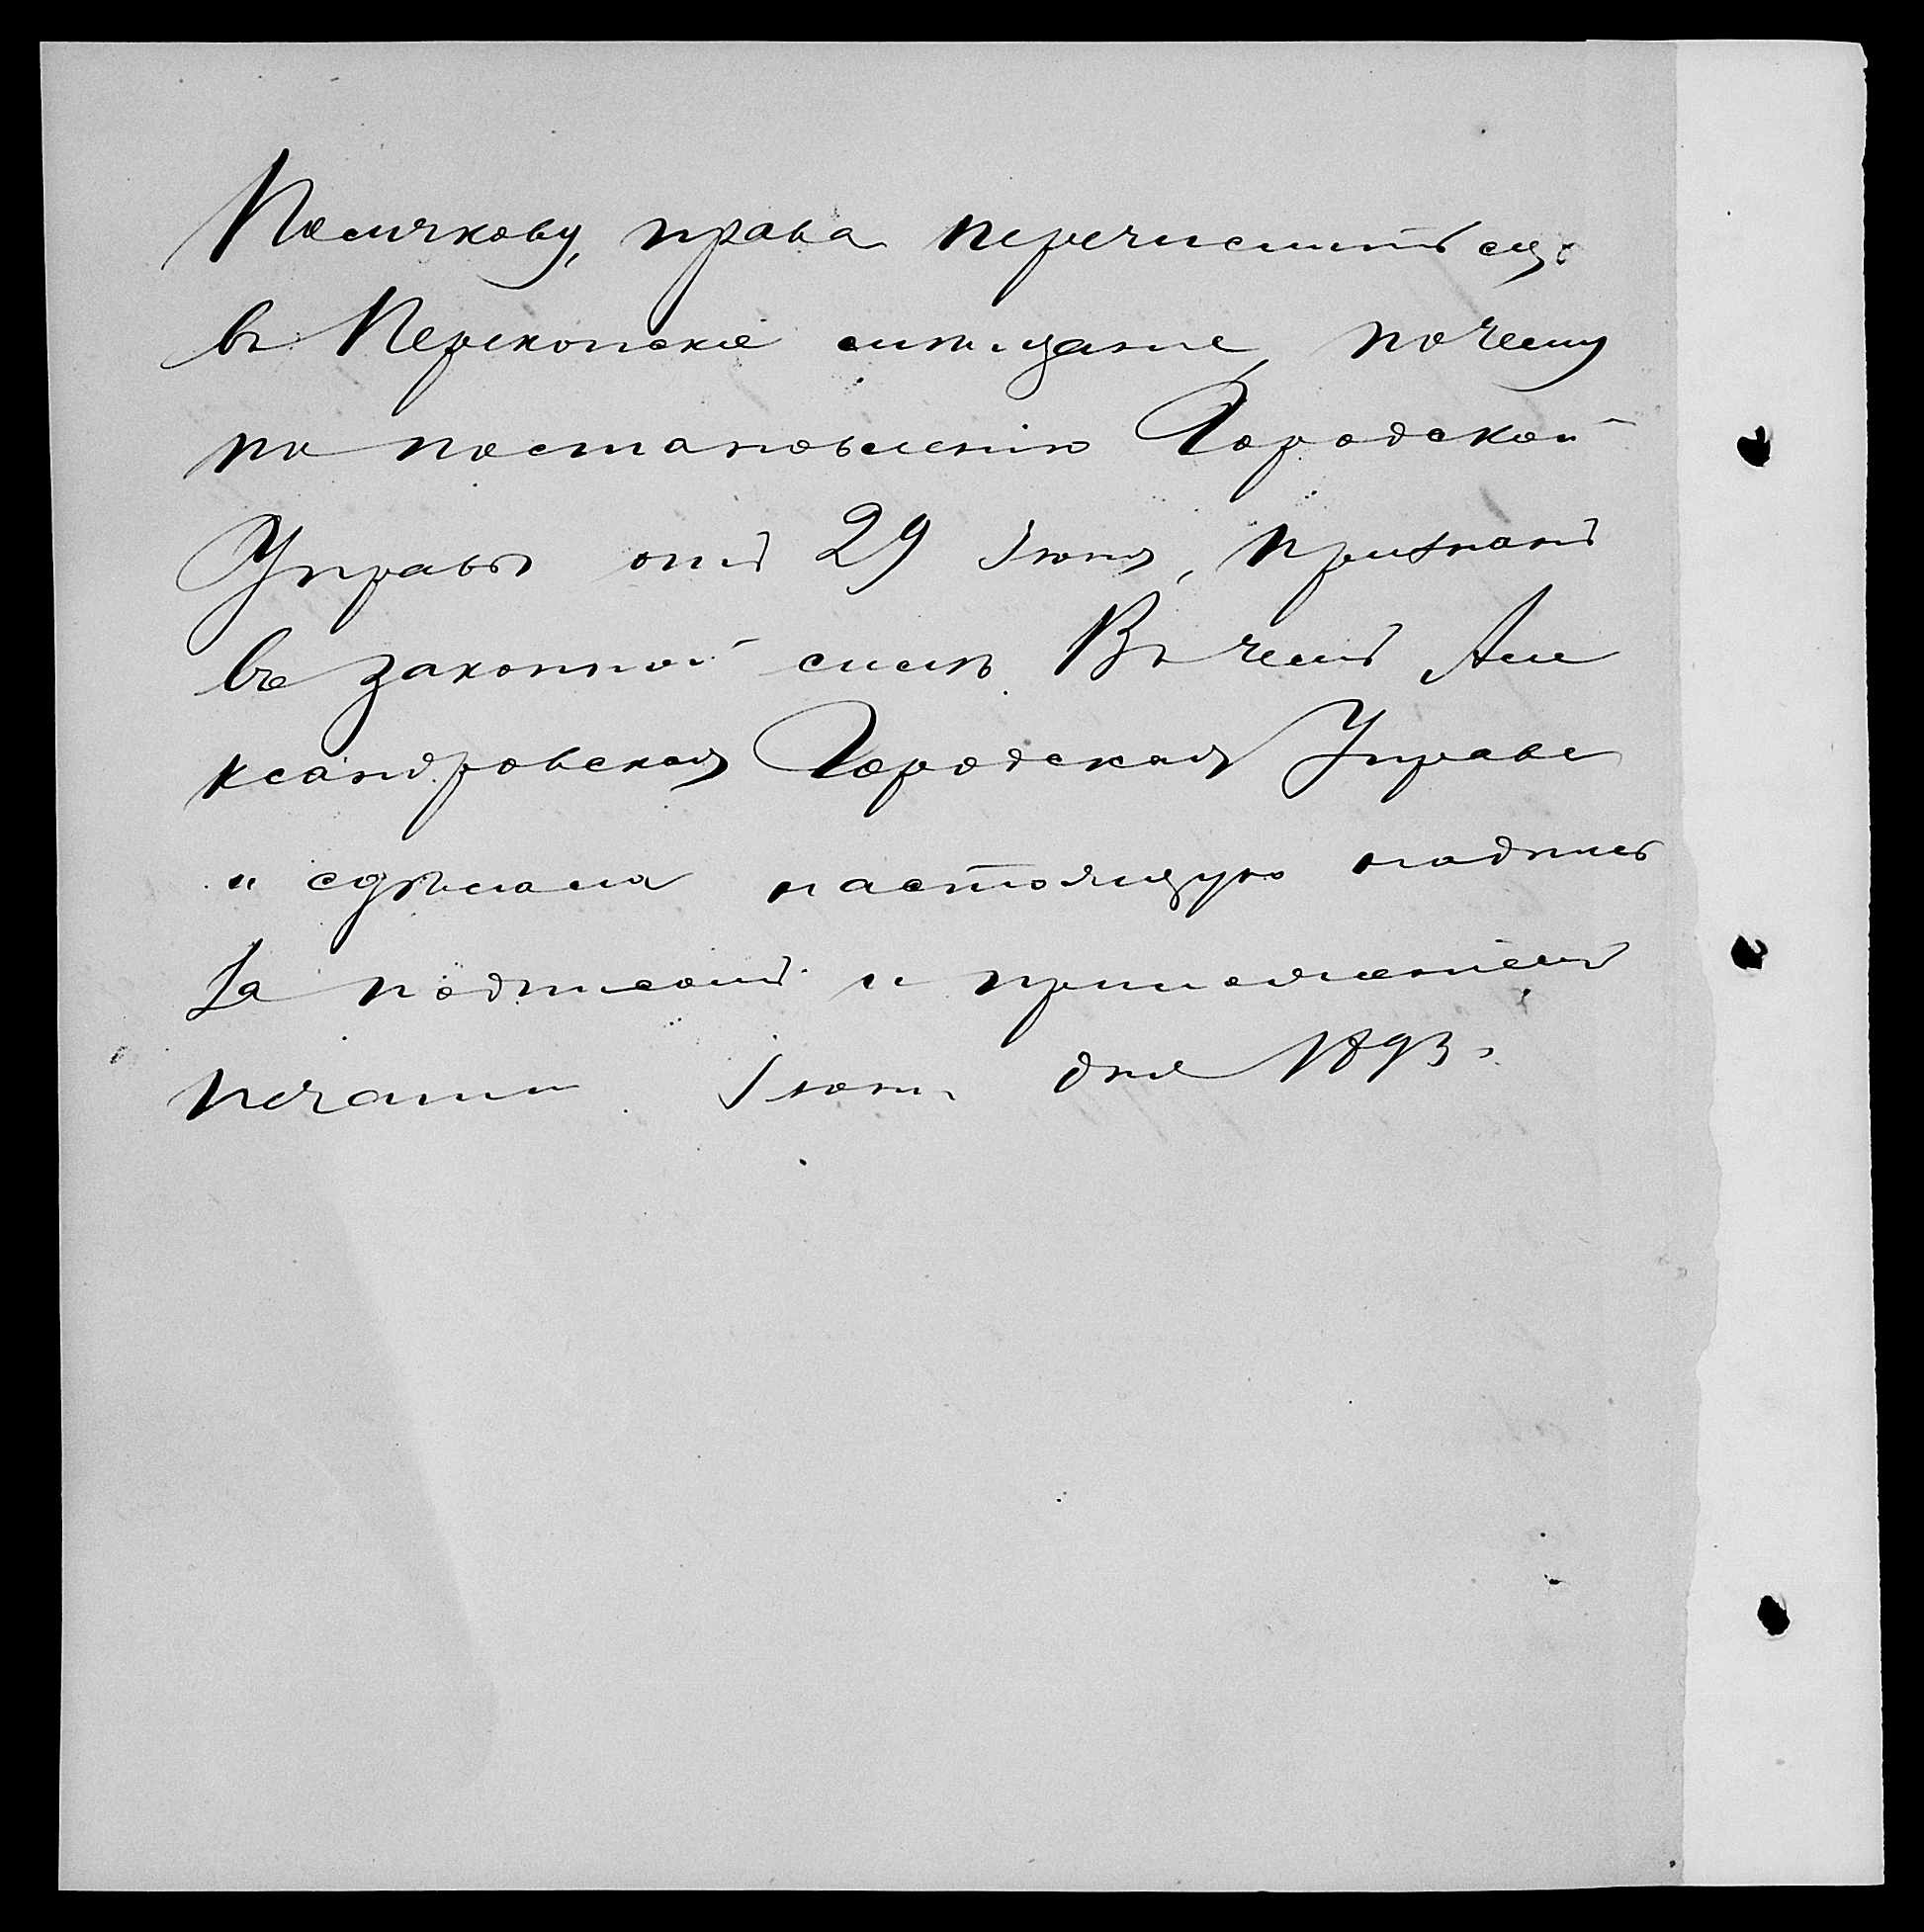 Полячкову, права перечислиться
въ Перекопскіе мѣщане, почему
по постановленію Городской
Управы отъ 29 Іюня, признанъ
въ законной силѣ. Въ чемъ Але
ксандровская Городская Управа
и сдѣлала настоящую надпись
За подписомъ и приложеніемъ
печати. Іюня дня 1893 г.